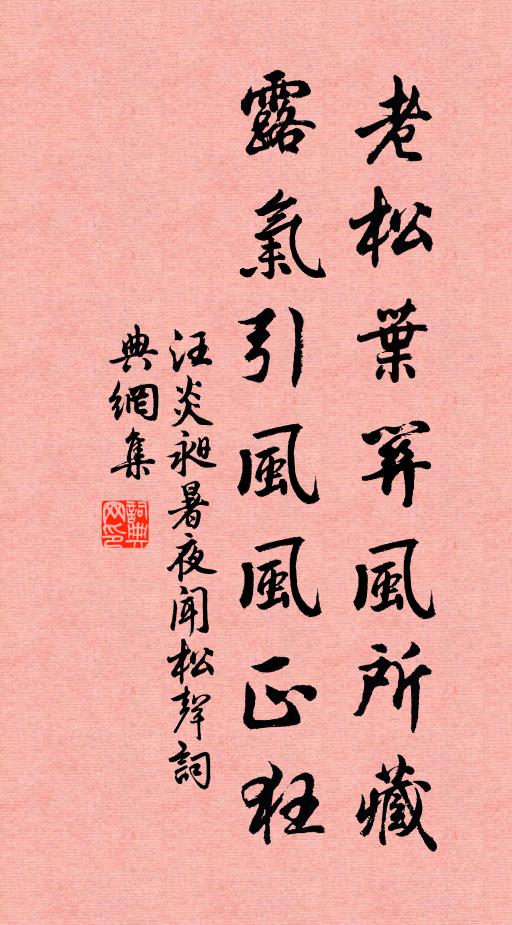 老松葉開風所藏
露氣引風風正狂
汪炎昶暑夜聞松聲詞
典網集
詞典網印